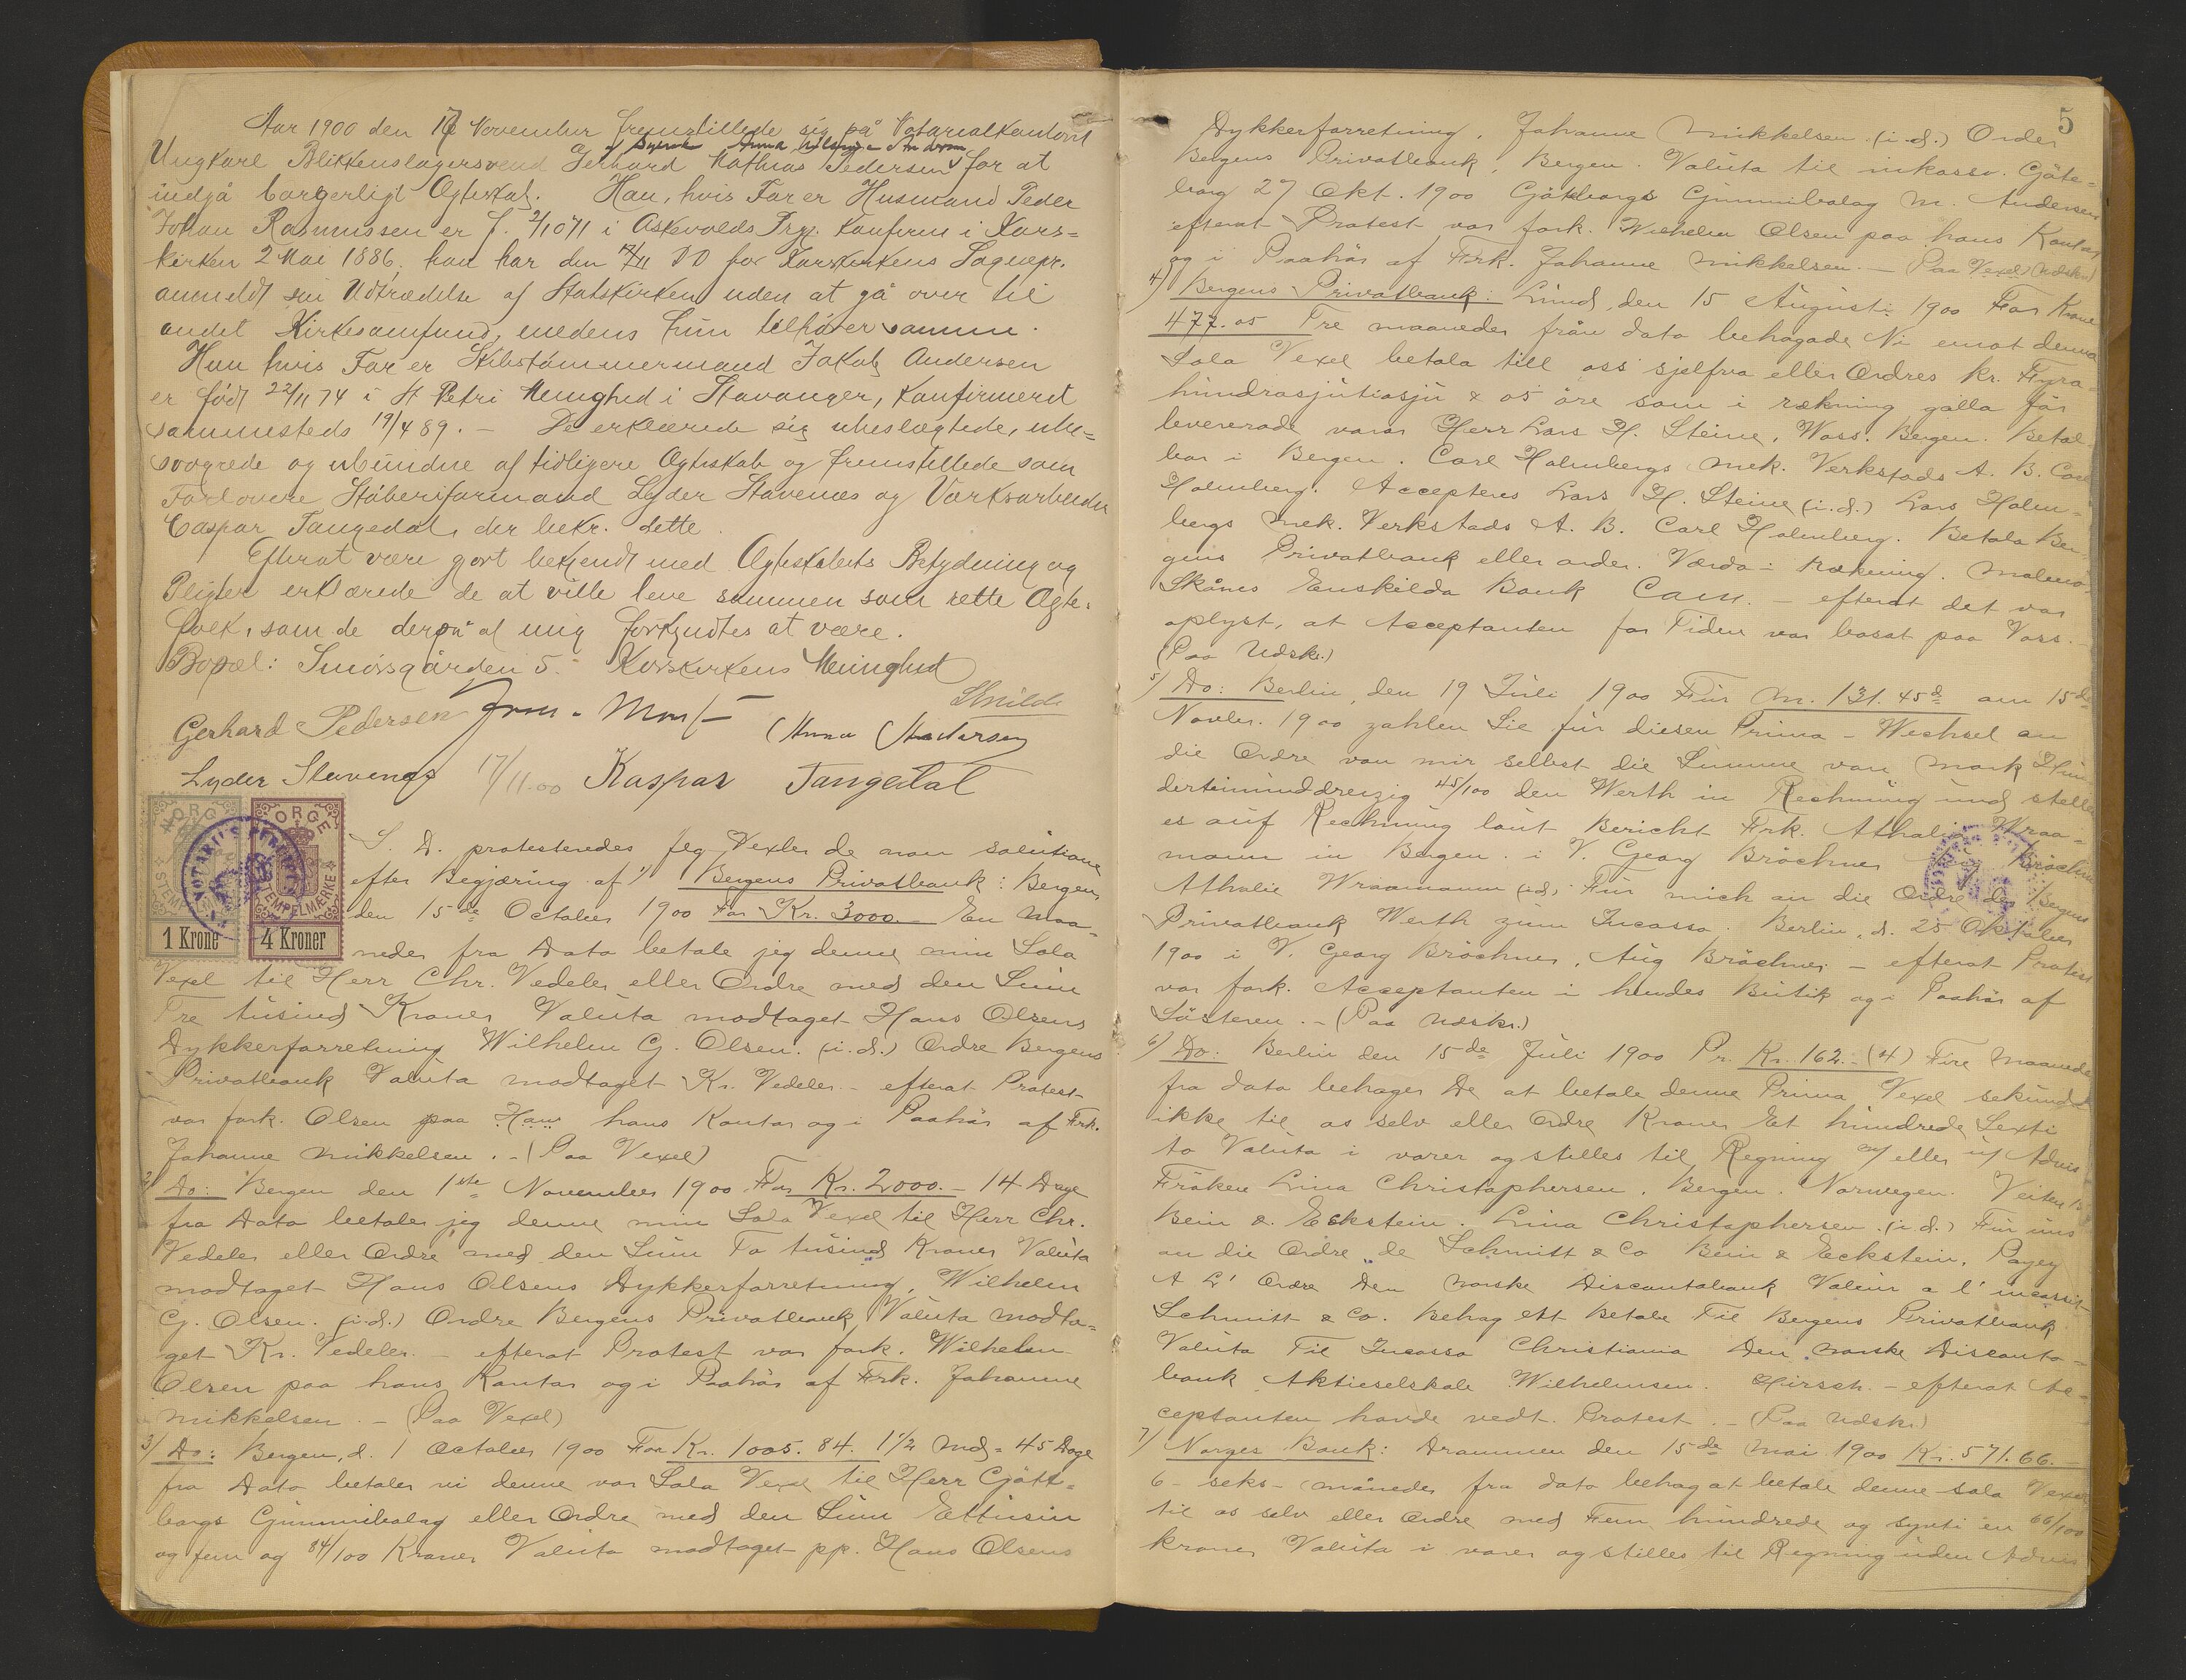 Aar 1900 den 17 November fremstillede sig på Notarialkontoret
og Syerske Anna Andersen
Ungkarl Blikkenslagersvend Gerhard Mathias Pedersen for at
indgå borgerligt Ægteskab. Han, hvis Far er Husmand Peder
Johan Rasmussen er f. i Askevolds Prgj. Konfirm i Kors=
kirken 2 Mai 1886, han har den for Korskirkens Sognepr.
anmeldt sin Udtrædelse af Statskirken uden at gå over til
andet Kirkesamfund, medens hun tilhører samme.
Hun hvis Far er Skibstømmermand Jakob Andersen
er født 22/11 74 i St Petri Menighed i Stavanger, Konfirmeret
sammesteds 19/4 89. – De erklærede sig ubeslægtede, ube=
svogrede og ubundne af tidligere Ægteskab og fremstillede som
Forlovere Støberiformand Lyder Stavenes og Værksarbeider
Caspar Tangedal, der bekr. dette.
Efterat være gjort bekjendt med Ægteskabets Betydning og
Pligter erklærede de at ville leve sammen som rette Ægte=
folk, som de derpå af mig forkyndtes at være.
Bopæl: Smörsgården 5. Korskirkens Menighed
Gerhard Pedersen Anna Andersen
Lyder Stavenes 17/11.00 Kaspar Tangedal
NORGE STEMPELMÆRKE 1 Krone
NORGE STEMPELMÆRKE 4 Kroner
S. D. protesteredes jeg Vexler de non solutione
efter Begjæring af 1) Bergens Privatbank: Bergen
den 15de October 1900 For Kr. 3000.– En Maa=
neder fra Dato betale jeg denne min Sola
Vexel til Herr Chr. Vedeler eller Ordre med den Sum
Tre tusind Kroner Valuta modtaget Hans Olsens
Dykkerforretning Wilhelm G. Olsen. (i.d.) Ordre Bergens
Privatbank Valuta modtaget Kr. Vedeler – efterat Protest
var fork. Olsen paa hans Kontor og i Paahør af Frk.
Johanne Mikkelsen. – (Paa Vexel)
2) Do: Bergen den 1ste November 1900 For Kr. 2000.– 14 Dage
fra Dato betaler jeg denne min Sola Vexel til Herr Chr.
Vedeler eller Ordre med den Sum To tusind Kroner Valuta
modtaget Hans Olsens Dykkerforretning, Wilhelm
G. Olsen. (i.d.) Ordre Bergens Privatbank Valuta modta=
get Kr. Vedeler. – efterat Protest var fork. Wilhelm
Olsen paa hans Kontor og i Paahør af Frk. Johanne
Mikkelsen. – (Paa Vexel)
3) Do: Bergen, d. 1 October 1900 For Kr. 1005. 84. 1½ Md = 45 Dage
fra Dato betaler vi denne vor Sola Vexel til Herr Gøte=
borgs Gummibolag eller Ordre med den Sum Ettusin
og fem og 84/100 Kroner Valuta modtaget pp. Hans Olsens
5
Dykkerforretning, Johanne Mikkelsen (i.d.) Order
Bergens Privatbank, Bergen. Valuta til inkasso. Göte=
borg 27 Okt. 1900 Göteborgs Gummibolag M. Andersen
efterat Protest var fork. Wilhelm Olsen paa hans Kontor
og i Paahør af Frk. Johanne Mikkelsen. – (Paa Vexel)
4) Bergens Privatbank: Lund, den 15 August: 1900 For Kroner
477.05 Tre maaneder från dato behagade Ni emot denna
Sola Vexel betala till oss sjelfva eller Ordres kr. Fyra=
hundrasjutiosju & 05 öre som i rækning gälla för
levererade varor Herr Lars H. Steine, Woss. Bergen. Betal=
bar i Bergen. Carl Holmbergs Mek. Verkstads A. B. Carl
Holmberg. Accepteres Lars H. Steine (i.d.) Lars Holm=
bergs Mek. Verkstads A. B. Carl Holmberg. Betala Ber=
gens Privatbank eller order. Værdo i rækning. Malmö,
Skånes Enskilda Bank – efterat det var
oplyst, at Acceptanten for Tiden var bosat paa Voss. –
(Paa Udskr.)
5) Do: Berlin, den 19 Juli 1900 Für M. 131. 45 am 15de
Novbr. 1900 zahlen Sie für diesen Prima – Wechsel an
die Ordre von mir selbst die Summe von Mark Hun
derteinunddreizig 45/100 den Werth in Rechnung und stellen
es auf Rechnung laut Bericht Frk. Athalie Wraa=
mann in Bergen. i V. Georg Bröchner Aug Bröchner
Athalie Wraamann (i.d.) Für mich an die Ordre der Bergens
Privatbank Werth zum Incasso. Berlin, d. 25 Oktober
1900 i V. Georg Bröchner, Aug Bröchner – efterat Protest
var fork. Acceptanten i hendes Butik og i Paahør af
Søsteren. – (Paa Udskr.)
6) Do: Berlin den 15de Juli 1900 Pr. Kr. 162.– (4) Fire Maaneder
fra dato behager De at betale denne Prima Vexel sekunda
ikke til os selv eller Ordre Kroner Et hundrede Sexti
to Valuta i varer og stilles til Regning m/ eller u/ Advis
Fröken Lina Christophersen, Bergen. Norwegen.
Bein & Eckstein. Lina Christophersen. (i.d.) Für uns
an die Ordre de Schmitt & Co Bein & Eckstein, Payez
A L' Ordre Den norske Discontobank Valeur a l'
Schmitt & Co. Behag ett Betale Til Bergens Privatbank
Valuta Til Incasso Christiania Den norske Disconto=
bank Aktieselskab Wilhelmsen. Hirsch. – efterat Ac=
ceptanten havde vedt. Protest. – (Paa Udskr)
7) Norges Bank: Drammen den 15de Mai 1900 Kr. 571. 66. –
6 – seks – måneder fra dato behag at betale denne sola Vexel
til os selv eller Ordre med Fem hundrede og sytti en 66/100
kroner Valuta i varer og stilles til Regning uden Advis